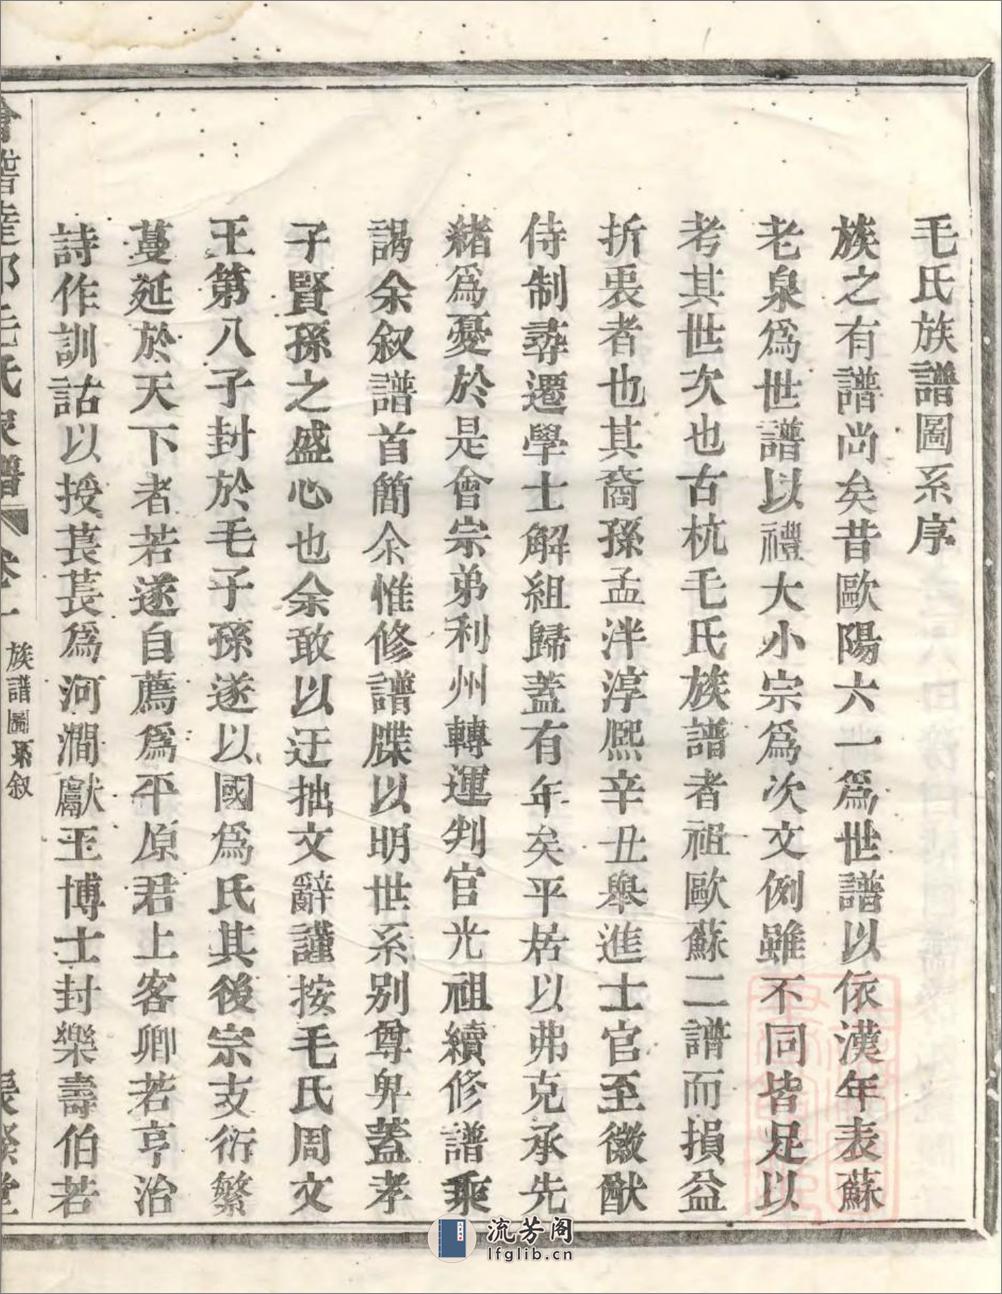 毛氏族譜圖系序
族之有譜尚矣昔歐陽六一爲世譜以依漢年表蘇
老泉爲世譜以禮大小宗爲次文例雖不同皆足以
考其世次也古杭毛氏族譜者祖歐蘇二譜而損益
折衷者也其裔孫孟泮淳熙辛丑舉進士官至徽猷
侍制尋遷學士解組歸蓋有年矣平居以弗克承先
緒爲憂於是會宗弟利州轉運判官光祖續修譜乘
謁余叙譜首簡余惟修譜牒以明世系别尊卑蓋孝
子賢孫之盛心也余敢以迂拙文辭謹按毛氏周文
王第八子封於毛子孫遂以國爲氏其後宗支衍繁
蔓延於天下者若遂自薦爲平原君上客卿若亨治
詩作訓詁以授萇萇爲河澗獻王博士封樂壽伯若
毛氏家譜 卷一 族譜圖系叙
流芳阁
lfglib.cn